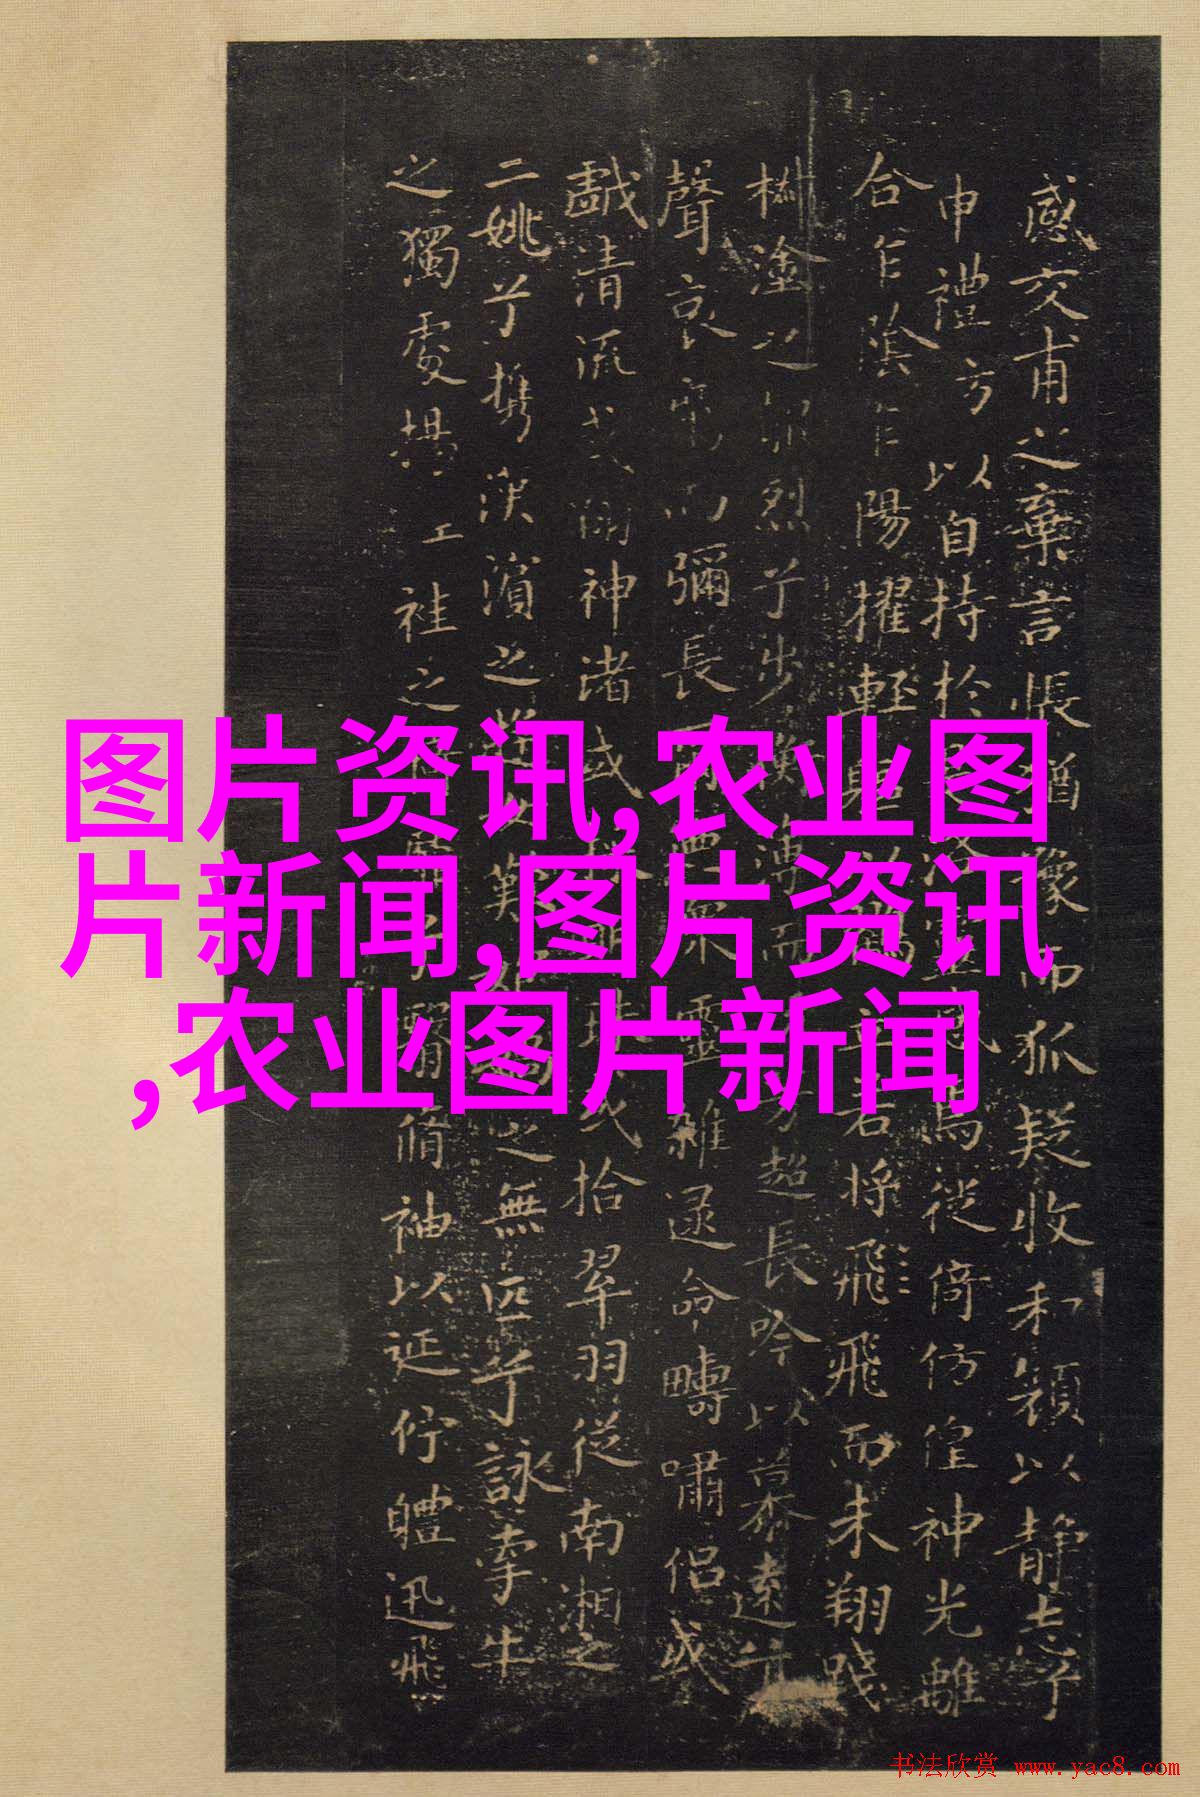 感交甫之棄言悵猶豫而狐疑收和顏以静志兮
申禮方以自持於靈感焉徙倚仿偟神光離
合乍陰乍陽擢輕軀以鶴立若將飛飛而未翔踐
椒塗之郁烈兮步薄而芳超長吟以慕遠兮
聲哀厲而彌長爾衆靈雜遝命疇嘯侶或
戲清流或翔神渚或珠或拾翠羽從南湘之
二姚兮攜漢濱之游女之無匹兮詠牽牛
之獨處揚袿之靡兮翳脩袖以延佇軆迅飛
图片资讯,农业图
片新闻,图片资讯
,农业图片新闻
书法欣赏 www.yac8.com